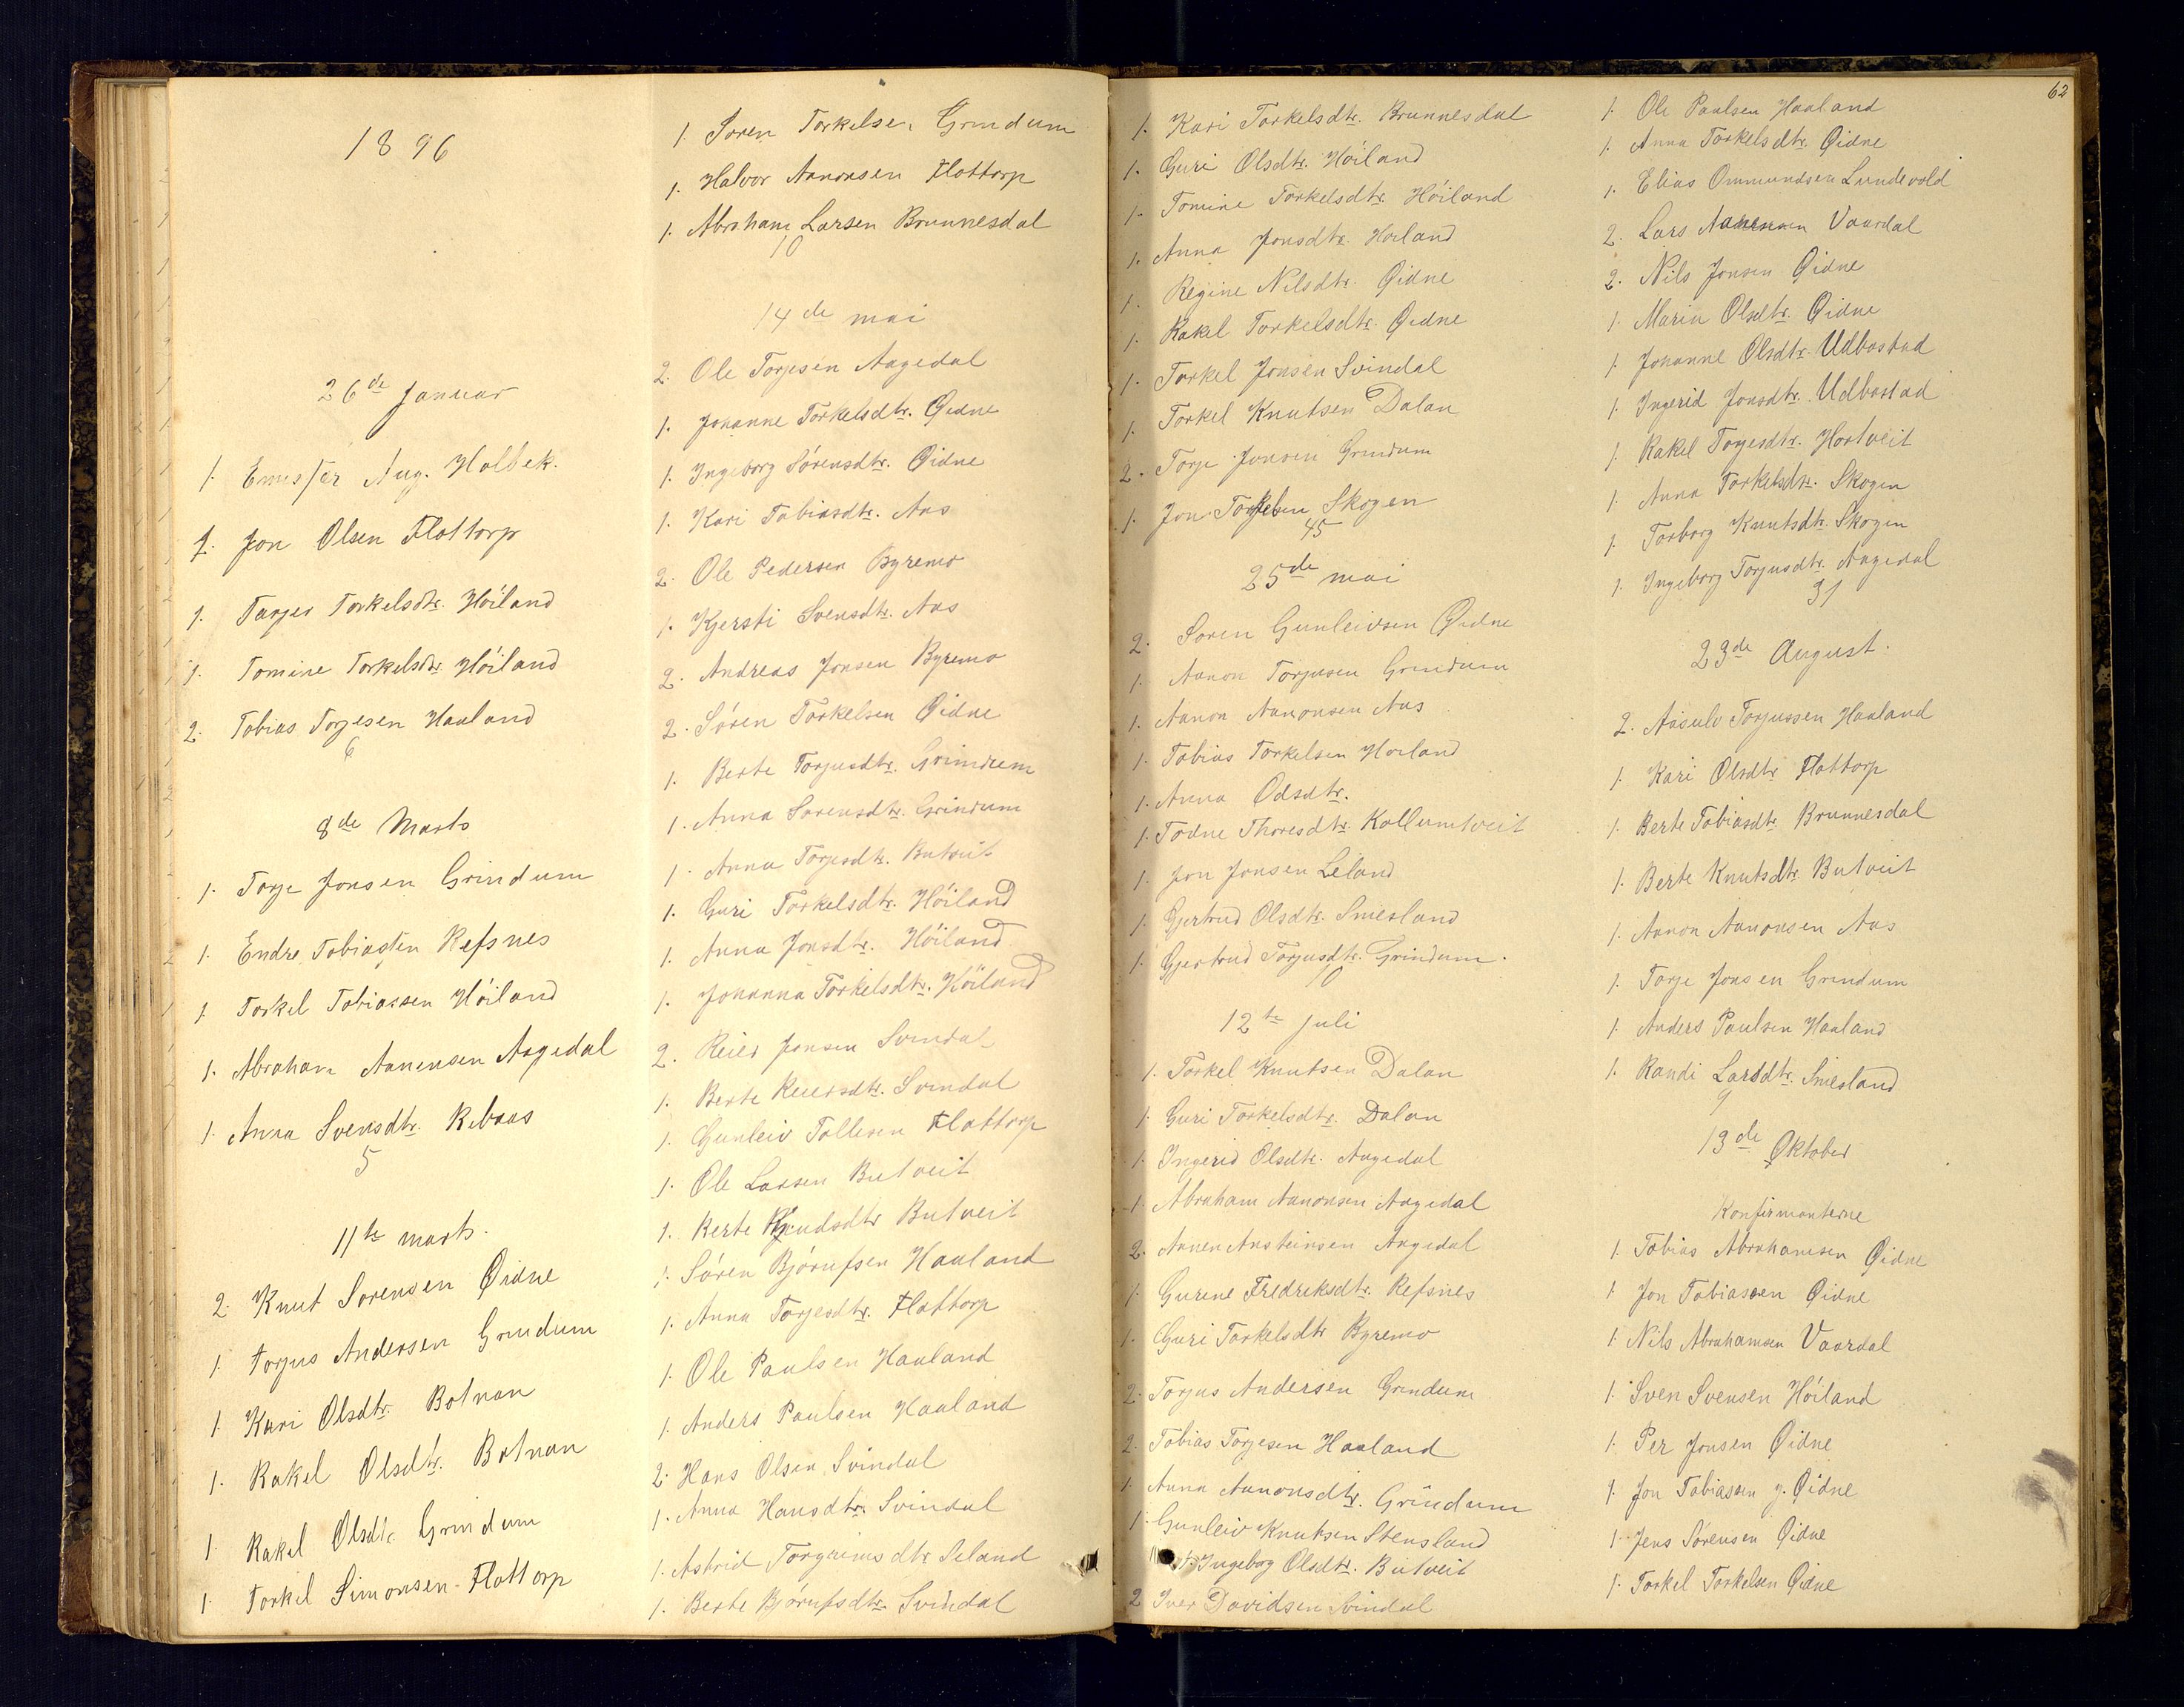 1896
26de Januar
1. Aug. Holbek.
1. Jon Olsen Flottorp
1. Tarjer Torkelsdtr. Höiland
1. Tomine Torkelsdtr. Höiland
2. Tobias Torjesen Haaland
6
8de Marts
1. Torje Jonsen Grindum
1. Endre Tobiassen Refsnes
1. Torkel Tobiassen Höiland
1. Abraham Aanensen Aagedal
1. Anna Svensdtr. Rebaas
5
11te marts.
2. Knut Sorensen Øidne
1. Torjus Andersen Grindum
1. Kari Olsdtr. Botnan
1. Rakel Olsdtr. Botnan
1. Rakel Olsdtr. Grindum
1. Torkel Simonsen Flottorp
1. Soren Torkelsen Grindum
1. Halvor Aanonsen Flottorp
1. Abraham Larsen Brunnesdal
10
14de mai
2. Ole Torjesen Aagedal
1. Johanne Torkelsdtr. Øidne
1. Ingeborg Sörensdtr. Øidne
1. Kari Tobiasdtr. Aas
2. Ole Pedersen Byremo
1. Kjersti Svensdtr. Aas
2. Andreas Jonsen Byremo
2. Sören Torkelsen Øidne
1. Berte Torjusdtr. Grindum
1. Anna Sorensdtr. Grindum
1. Anna Torjesdtr. Butveit
1. Guri Torkelsdtr. Höiland
1. Anna Jonsdtr. Höiland
1. Johanna Torkelsdtr. Höiland
2. Reier Jonsen Svindal
1. Berte Reiersdtr. Svindal
1. Gunleiv Tollesen Flottorp
1. Ole Larsen Butveit
1. Berte Knudsdtr Butveit
1. Sören Björnfsen Haaland
1. Anna Torjesdtr. Flottorp
1. Ole Paulsen Haaland
1. Anders Paulsen Haaland
2. Hans Olsen Svindal
1. Anna Hansdtr. Svindal
1. Astrid Torgrimsdtr Seland
1. Berte Björnfsdtr. Svindal
1. Kari Torkelsdtr. Brunnesdal
1. Guri Olsdtr. Höiland
1. Tomine Torkelsdtr. Höiland
1. Anna Jonsdtr. Hoiland
1. Regine Nilsdtr. Øidne
1. Rakel Torkelsdtr. Øidne
1. Torkel Jonsen Svindal
1. Torkel Knutsen Dalan
2. Torje Jonsen Grindum
1. Jon Torkelsen Skogen
45
25de mai
2. Soren Gunleivsen Øidne
1. Aanon Torjusen Grindum
1. Aanon Aanonsen Aas
1. Tobias Torkelsen Hoiland
1. Anna Odsdtr.
1. Todne Thoresdtr. Kollumtveit
1. Jon Jonsen Leland
1. Gjertrud Olsdtr. Smesland
1. Gjertrud Torjusdtr. Grindum.
10
12te juli
1. Torkel Knutsen Dalan
1. Guri Torkelsdtr. Dalan
1. Ingerid Olsdtr. Aagedal
1. Abraham Aanonsen Aagedal
2. Aanen Ansteinsen Aagedal
1. Gurine Fredriksdtr. Refsnes
1. Guri Torkelsdtr Byremo
2. Torjus Andersen Grindum
2. Tobias Torjesen Haaland
1. Anna Aanonsdtr. Grindum
1. Gunleiv Knutsen Stensland
1. Ingeborg Olsdtr. Butveit
2 Iver Davidsen Svindal
62
1. Ole Paulsen Haaland
1. Anna Torkelsdtr. Øidne
1. Elias Ommundsen Lundevold
2. Lars Aanensen Vaardal
2. Nils Jonsen Øidne
1. Maria Olsdtr. Øidne
1. Johanne Olsdtr. Udbostad
1. Ingerid Jonsdtr. Udbostad
1. Rakel Torjesdtr. Hortveit
1. Anna Torkelsdtr. Skogen
1. Torborg Knutsdtr. Skogen
1. Ingeborg Torjusdtr. Aagedal
31
23de August.
2. Aasulv Torjussen Haaland
1. Kari Olsdtr Flottorp
1. Berte Tobiasdtr. Brunnesdal
1. Berte Knutsdtr. Butveit
1. Aanon Aanonsen Aas
1. Torje Jonsen Grindum
1. Anders Paulsen Haaland
1. Randi Larsdtr. Smesland
9
13de Oktober
Konfirmanterne
1. Tobias Abrahamsen Øidne
1. Jon Tobiassen Øidne
1. Nils Abrahamsen Vaardal
1. Sven Svensen Höiland
1. Per Jonsen Øidne
1. Jon Tobiassen y. Øidne
1. Jens Sörensen Øidne
1. Torkel Torkelsen Øidne